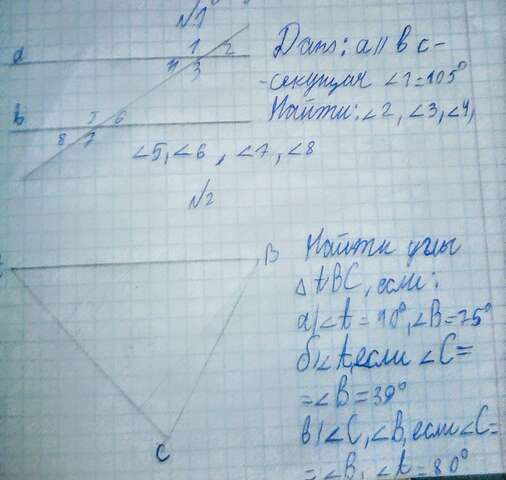 №1
a
1 2
4 3
Дано: a || b c-
-секущая ∠1=105°
Найти: ∠2, ∠3, ∠4,
b
5 6
8 7
∠5, ∠6, ∠7, ∠8
№2
B
C
Найти углы
△ABC, если:
а) ∠A = 90°, ∠B = 75°
б) ∠A, если ∠C =
= ∠B = 39°
в) ∠C, ∠B, если ∠C =
= ∠B, ∠A = 80°